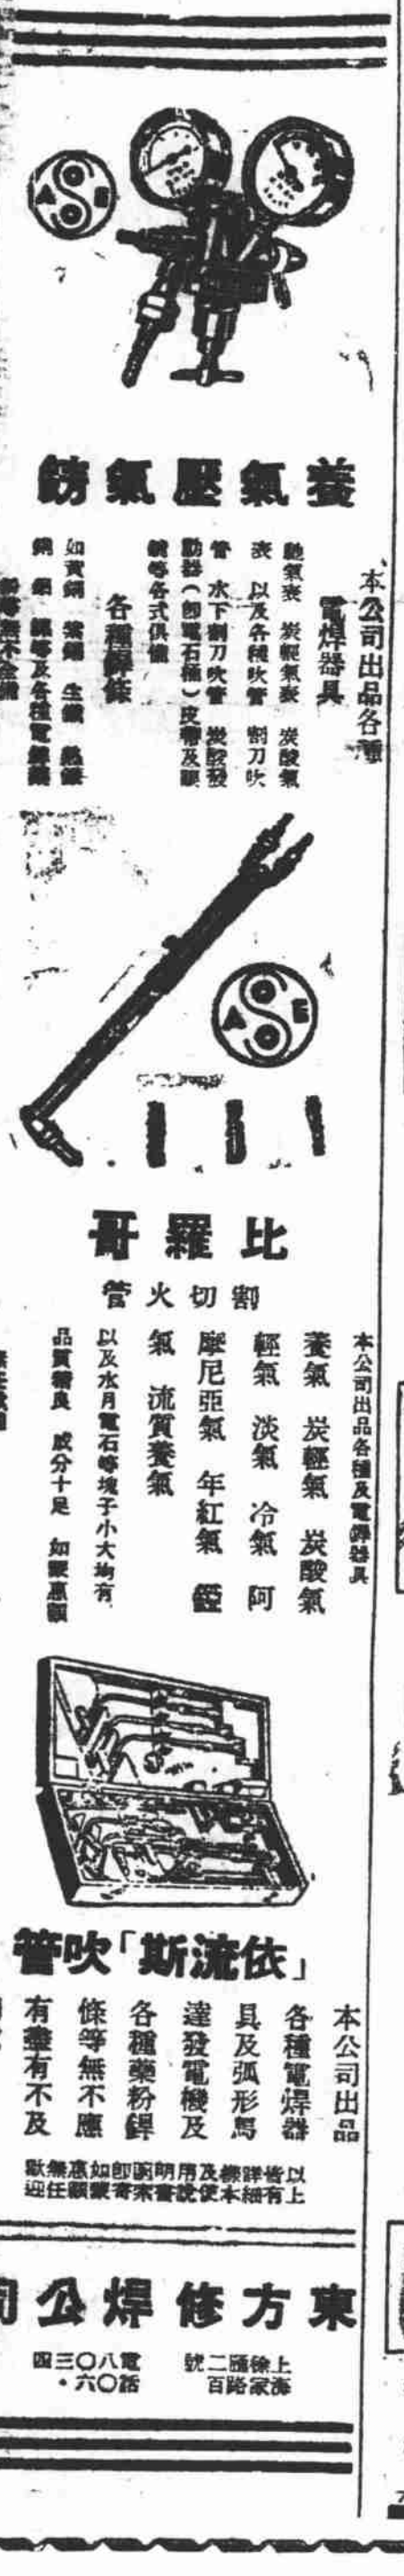 養氣壓氣鎊
本公司出品各種
電焊器具
炭輕氣表 炭酸氣
表 以及各種吹管 割刀吹
管 水下割刀吹管 炭酸發
動器(即電石桶)皮帶及眼
鏡等各式俱備
各種銲條
如黃銅 紫銅 生鐵 熟鐵
等及各種電銲藥
A S E
比羅哥
割切火管
本公司出品各種及電銲器具
養氣 炭輕氣 炭酸氣
輕氣 淡氣 冷氣 阿
摩尼亞氣 年紅氣
氣 流質養氣
以及水月電石等塊子小大均有
品質精良 成分十足 如蒙惠顧
「依流斯」吹管
本公司出品
各種電焊器
具及弧形馬
達發電機及
各種藥粉銲
條等無不應
有盡有不及
以上皆有詳細樣本及使用說明書函索即寄如蒙惠顧無任歡迎
東方修焊公司
上海徐家匯路二百號
電話八〇〇六三・四